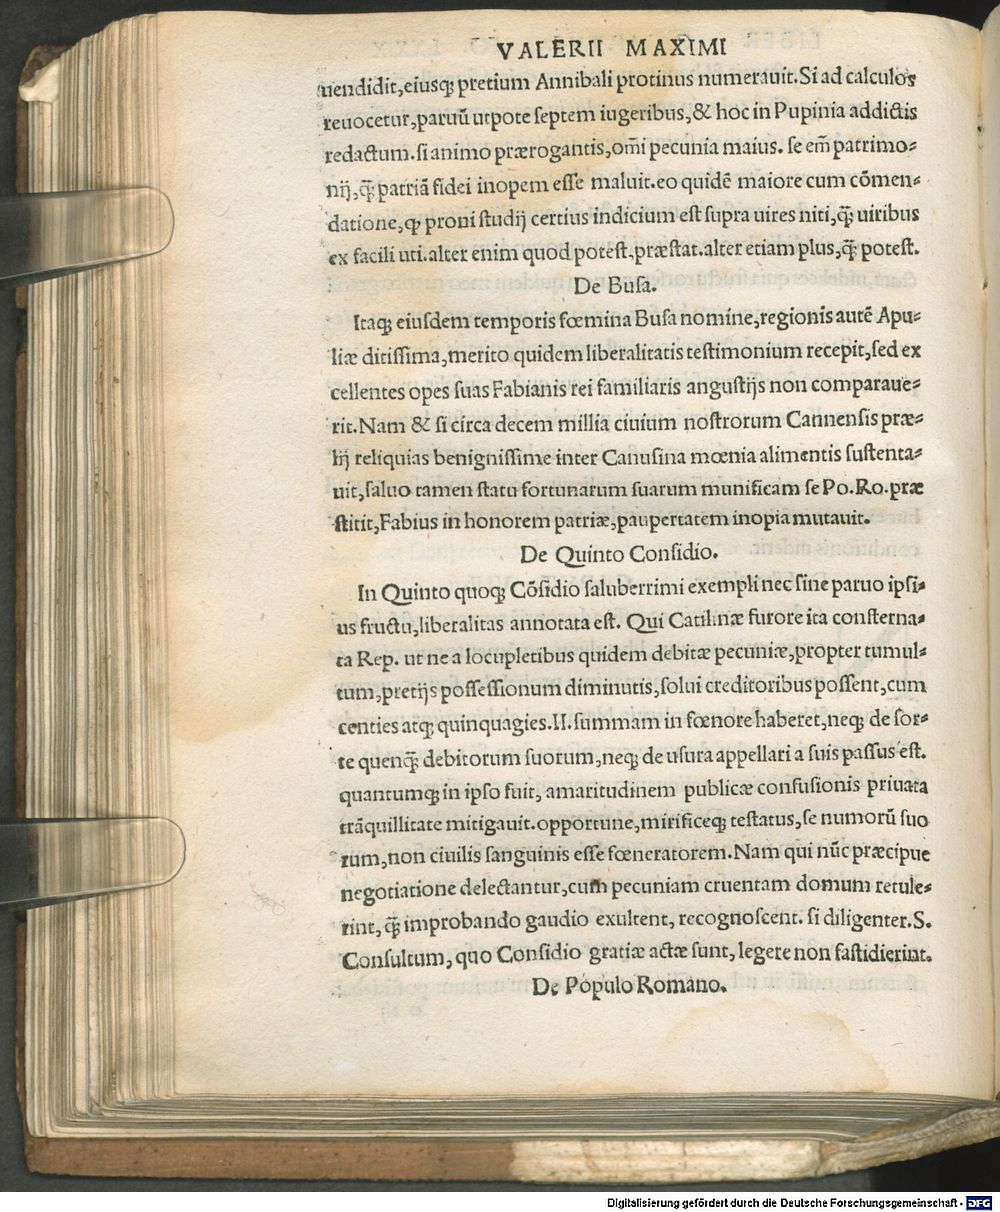 VALERII MAXIMI
uendidit,eiusqꝫ pretium Annibali protinus numerauit.Si ad calculos
reuocetur,paruū utpote septem iugeribus,& hoc in Pupinia addictis
redactum.si animo prærogantis,om̄i pecunia maius. se em̄ patrimo⸗
nij,q̄ꝫ patriā fidei inopem esse maluit.eo quidē maiore cum cōmen⸗
datione,ꝙ proni studij certius indicium est supra uires niti,q̄ꝫ uiribus
ex facili uti.alter enim quod potest,præstat.alter etiam plus,q̄ꝫ potest.
De Busa.
Itaqꝫ eiusdem temporis fœmina Busa nomine,regionis autē Apu⸗
liæ ditissima,merito quidem liberalitatis testimonium recepit,sed ex
cellentes opes suas Fabianis rei familiaris angustijs non comparaue⸗
rit.Nam & si circa decem millia ciuium nostrorum Cannensis præ⸗
lij reliquias benignissime inter Canusina mœnia alimentis sustenta⸗
uit,saluo tamen statu fortunarum suarum munificam se Po.Ro.præ
stitit,Fabius in honorem patriæ,paupertatem inopia mutauit.
De Quinto Considio.
In Quinto quoqꝫ Cōsidio saluberrimi exempli nec sine paruo ipsi⸗
us fructu,liberalitas annotata est. Qui Catilinæ furore ita consterna⸗
ta Rep. ut ne a locupletibus quidem debitæ pecuniæ,propter tumul⸗
tum,pretijs possessionum diminutis,solui creditoribus possent,cum
centies atqꝫ quinquagies.II.summam in fœnore haberet,neqꝫ de sor⸗
te quenq̄ꝫ debitorum suorum,neqꝫ de usura appellari a suis passus est.
quantumqꝫ in ipso fuit, amaritudinem publicæ confusionis priuata
trāquillitate mitigauit.opportune,mirificeqꝫ testatus,se numorū suo
rum,non ciuilis sanguinis esse fœneratorem.Nam qui nūc præcipue
negotiatione delectantur,cum pecuniam cruentam domum retule⸗
rint,q̄ꝫ improbando gaudio exultent, recognoscent. si diligenter.S.
Consultum, quo Considio gratiæ actæ sunt, legere non fastidierint.
De Populo Romano.
Digitalisierung gefördert durch die Deutsche Forschungsgemeinschaft - DFG